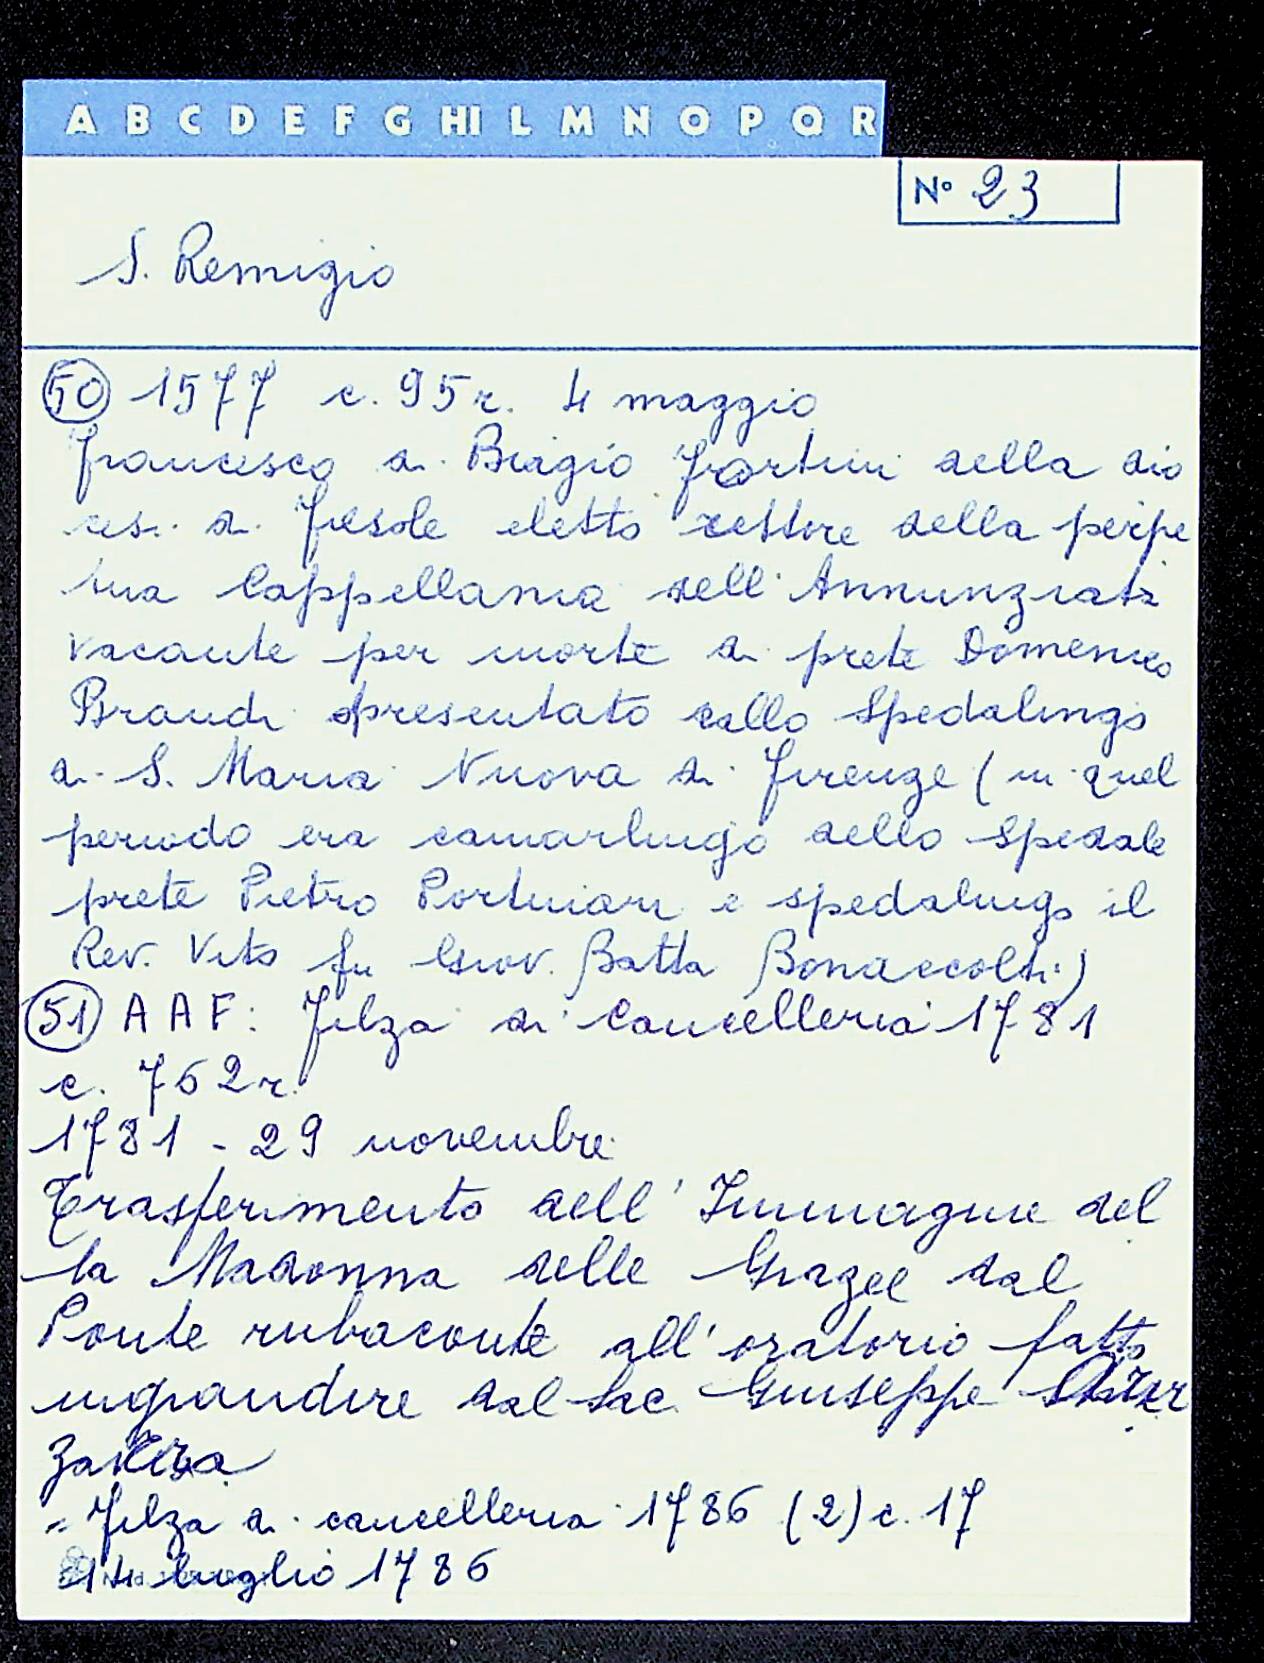 A B C D E F G HI L M N O P Q R
N° 23
S. Remigio
50 1577 c. 95r. 4 maggio
Francesco di Biagio Fortini della dio
cesi di Fiesole eletto rettore della perpe
tua Cappellania dell'Annunziata
vacante per morte di prete Domenico
Brandi presentato dallo Spedalingo
di S. Maria Nuova di Firenze (in quel
periodo era camarlingo dello Spedale
prete Pietro Portinari e spedalingo il
Rev. Vito fu Giov. Batta Bonaccolti)
51 A A F: Filza di Cancelleria 1781
c. 762r.
1781 - 29 novembre
Trasferimento dell'Immagine del
la Madonna delle Grazie dal
Ponte rubaconte all'oratorio fatto
ingrandire dal Sac. Giuseppe
= Filza di cancelleria 1786 (2) c. 17
14 luglio 1786